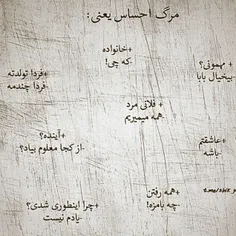 مرگ احساس یعنی:
+خانواده
که چی!
+ مهمونی؟
بیخیال بابا
+فردا تولدته
-فردا چندمه
+ فلانی مرد
همه میمیریم
+آینده؟
-از کجا معلوم بیاد؟
+عاشقتم
-باشه
+همه رفتن
چه بامزه!
+چرا اینطوری شدی؟
-یادم نیست